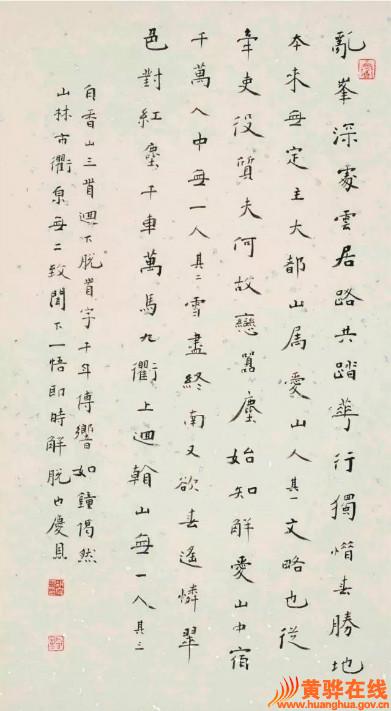 亂峯深處雲居路共踏華行獨惜春勝地
本來無定主大都山屬愛山人其一文略也從
牽吏役質夫何故戀囂塵始知解愛山中宿
千萬人中無一人其二雪盡終南又欲春遙憐翠
色對紅塵千車萬馬九衢上迴山無一人其三
白香山三首迴下脫首字千年傳響如鐘偈然
山林市衢無二致聞下一悟即時解脫也慶
黄骅在线
www.huanghua.gov.cn